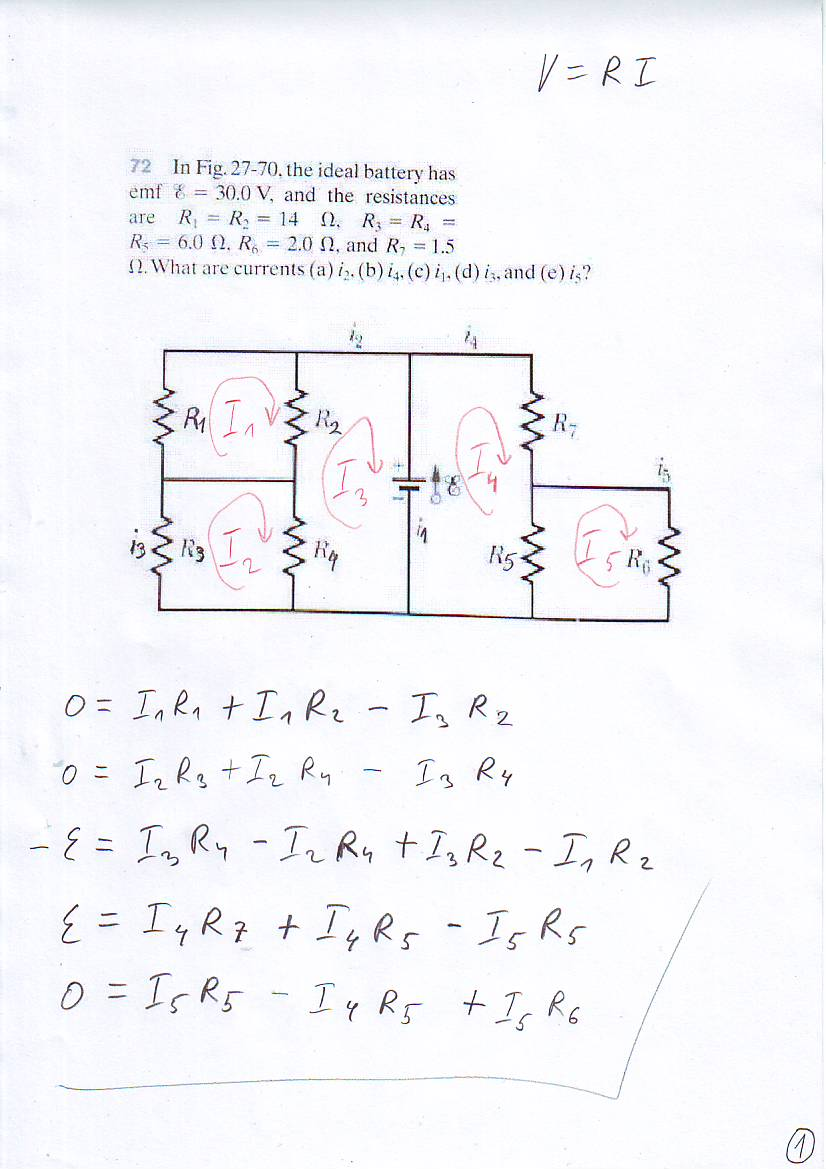 V = R I
72 In Fig. 27-70, the ideal battery has
emf ℰ = 30.0 V, and the resistances
are R₁ = R₂ = 14 Ω, R₃ = R₄ =
R₅ = 6.0 Ω, R₆ = 2.0 Ω, and R₇ = 1.5
Ω. What are currents (a) i₂, (b) i₄, (c) i₁, (d) i₃, and (e) i₅?
i₂ i₄
R₁ I₁ R₂ I₃ + ℰ I₄ R₇
i₅
i₃ R₃ I₂ R₄ - i₁ R₅ I₅ R₆
0 = I₁R₁ + I₁R₂ - I₃ R₂
0 = I₂R₃ + I₂ R₄ - I₃ R₄
-ℰ = I₃R₄ - I₂ R₄ + I₃R₂ - I₁ R₂
ℰ = I₄R₇ + I₄R₅ - I₅R₅
0 = I₅R₅ - I₄R₅ + I₅R₆
1